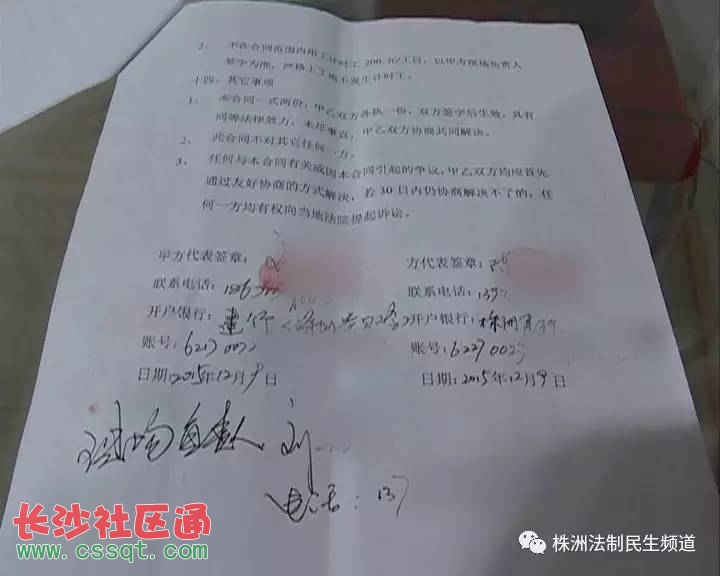 2、 不在合同范围内用工计时工 200 元/工日，以甲方现场负责人
签字为准，严格上工地不发生计时工。
十四、其它事项
1、 本合同一式两份，甲乙双方各执一份，双方签字后生效，具有
同等法律效力，未尽事宜，甲乙双方协商共同解决。
2、 此合同不对其它任何一方。
3、 任何与本合同有关或因本合同引起的争议，甲乙双方均应首先
通过友好协商的方式解决，若 30 日内仍协商解决不了的，任
何一方均有权向当地法院提起诉讼。
甲方代表签章：
方代表签章：
联系电话：186
联系电话：139
开户银行：建行
开户银行：株洲
账号：6217 00
账号：6227 00
日期：2015年12月9日
日期：2015年12月9日
现场负责人：刘
电话：137
长沙社区通
www.cssqt.com
株洲法制民生频道